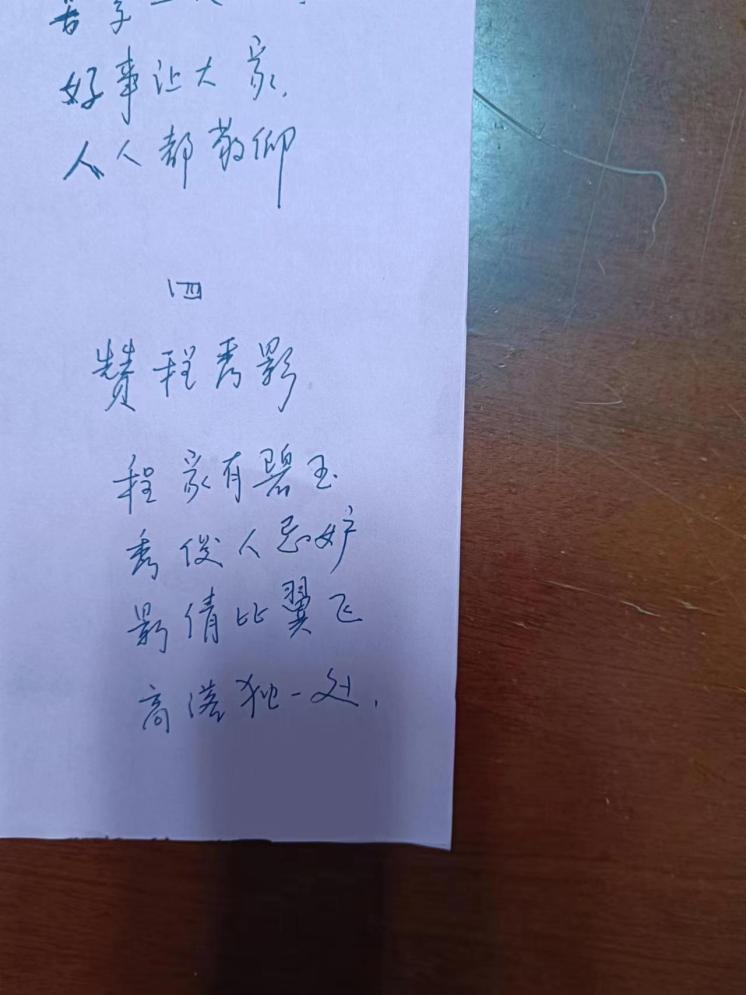 好事让大家,
人人都敬仰
四
赞程秀影
程家有碧玉
秀俊人忌妒
影倩比翼飞
高洁独一处,